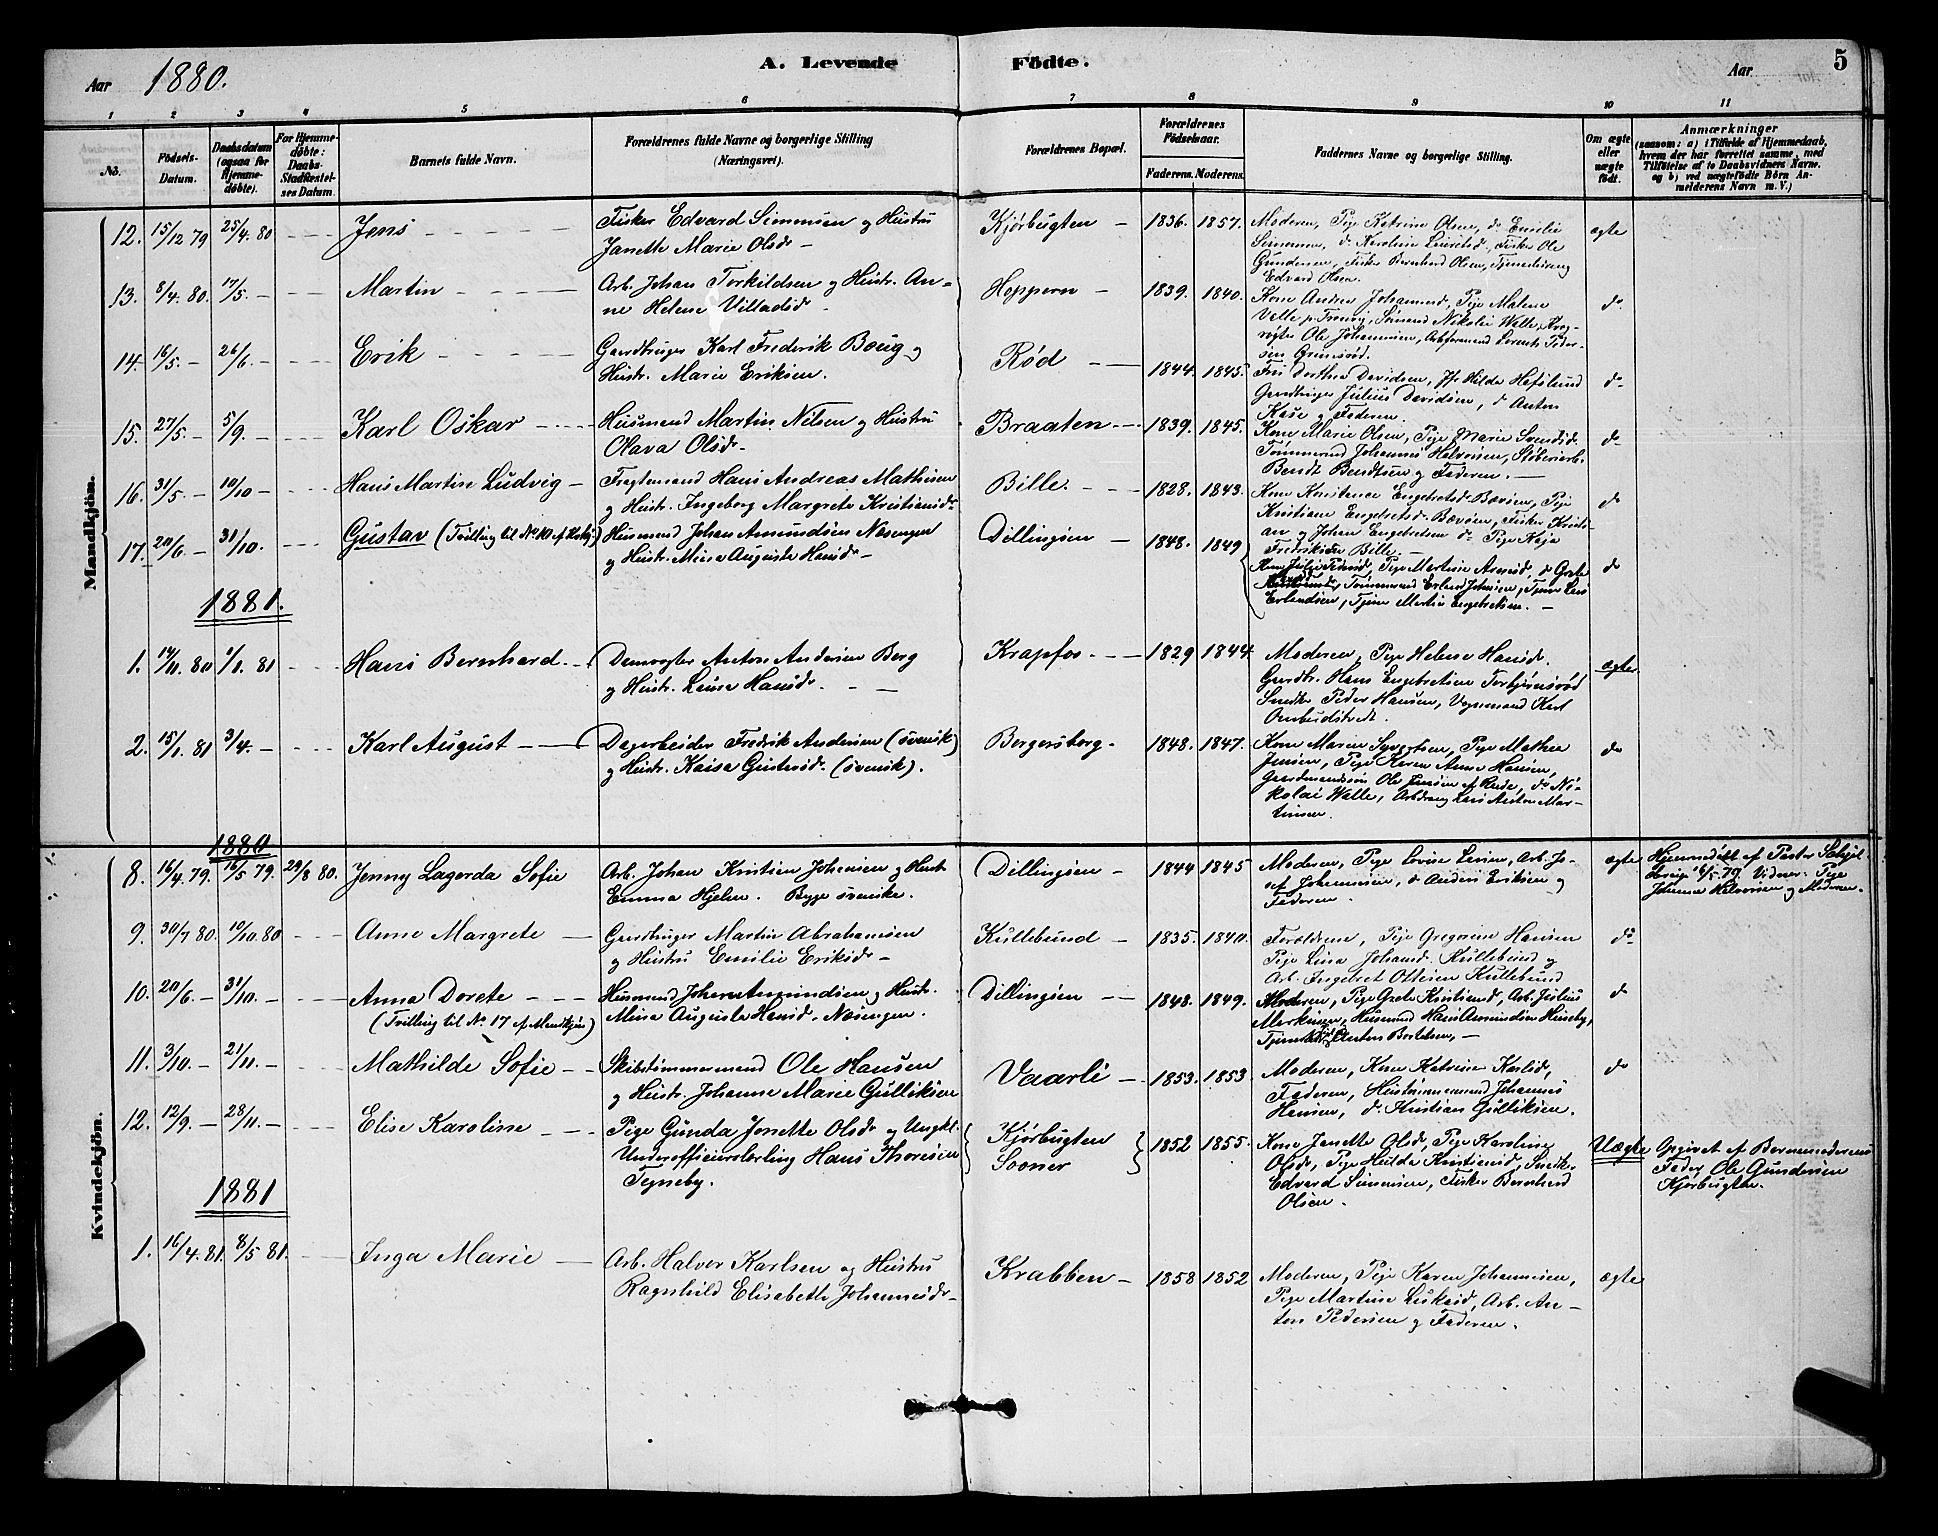 Aar 1880. A. Levende Födte. Aar 5
1 2 3 4 5 6 7 8 9 10 11
No. Födsels-Datum. Daabsdatum (ogsaa for Hjemmedøbte). For Hjemmedøbte: Daabs-Stadfæstelses Datum. Barnets fulde Navn. Forældrenes fulde Navne og borgerlige Stilling (Næringsvei). Forældrenes Bopæl. Forældrenes Födselsaar. Faderens. Moderens. Faddernes Navne og borgerlige Stilling. Om ægte eller uægte födt. Anmærkninger (saasom: a) i Tilfælde af Hjemmedaab, hvem der har forrettet samme, med Tilføielse af to Daabsvidners Navne. og b) ved uægtefödte Börn Anmelderens Navn m. V.)
Mandkjön.
12. 15/12 79 25/4. 80 Jens Fisker Edvard Simensen og Hustru
Janette Marie Olsdr
Kjørbugten 1836. 1857. Moderen, Pige Katrine Olsen, do Emilie
Simensen, do Karoline Lauritsd, Fisker Ole
Gundersen, Fisker Bernhard Olsen, Tjenestedreng
Edvard Olsen. ægte
13. 8/4. 80. 17/5. Martin Arb. Johan Torkildsen og Hustr. An-
ne Helene Villadsd
Hoppern 1839. 1840. Kone Andrea Johannesd, Pige Malene
Valle, Sömand Nikolai Walle,
Ole Johannesen, Arbformand Lorents Peder-
sen Grimsröd. do
14. 16/5. 26/6. Erik Gaardbruger Karl Frederik Boug og
Hustr. Marie Eriksen.
Rød 1844. 1845. Fru Dorthea Davidsen, Jfr Hilda Hafslund
Gaardbruger Julius Davidsen, do Anton
Kase og Faderen. do
15. 27/5. 5/9. Karl Oskar Husmand Martin Nilsen og Hustru
Olava Olsdr
Braaten 1839. 1845. Kone Marie Olsen, Pige Marie Svendsd.
Tömmermd Johannes Halvorsen, Støberiarb.
Bendt Bendtsen og Faderen. do
16. 31/5. 10/10 Hans Martin Ludvig Fragtemand Hans Andreas Mathisen
og Hustr. Ingeborg Margrete Kristiansdr
Bille. 1828. 1843. Kone Konstance Engebretsd. Bævöen, Pige
Kristiane Engebretsd. Bævöen, Fisker Kristi-
an og Johan Engebretsen do Pige Kaja
Fredriksen Bille. do
17. 20/6. 31/10. Gustav (Tvilling til No 10 af Kvkj.) Husmand Johan Amundsen Næsengen
og Hustr. Mina Augusta Hansdr
Dillingöen 1848. 1849 Pige Martine Arnesd, do Grete
Tömmermd Erland Johnsen, Tjener Lars
Erlandsen, Tjener Martin Engebretsen. do
1881.
1. 14/11. 80 1/1. 81 Hans Bernhard Damvogter Anton Andersen Berg
og Hustr. Laura Hansdr.
Krapfos 1829 1844 Moderen, Pige Helene Hansdr.
Gaardbr. Hans Engebretsen Torbjörnsröd
Snedker Peder Hansen, Vognmand Karl
Ombudstvedt. ægte
2. 15/1. 81 3/4. Karl August Dagarbeider Fredrik Andersen (svensk)
og Hustr. Kaisa Gustavsdr. (svensk).
Bergersborg. 1848. 1847. Kone Maren Syvertsen, Pige Mathea
Jensen, Pige Karen Anna Hansen,
Gaardmandssön Ole Jensen af Rude, do Ni-
kolai Walle, Arbdreng Lars Anton Mar-
tinsen. do
Kvindekjön.
1880
8. 16/4. 79. 16/5 79. 29/8 80. Jenny Lagerda Sofie Arb. Johan Kristian Johansen og Hustr.
Emma Hjelm. Begge svenske.
Dillingöen 1844 1845 Moderen, Pige Lovise Larsen, Arb. Jo-
sef Johannesen, do Anders Eriksen og
Faderen. ægte Hjemmedöbt af Pastor
16/5 79. Vidner: Pige
Johanne Halvorsen og Moderen.
9. 30/7 80. 10/10. 80 Anne Margrete Gaardbruger Martin Abrahamsen
og Hustru Emilie Eriksdr
Kullebund 1835. 1840. Forældrene, Pige Gregorine Hansen
Pige Lina Johansd. Kullebund og
Arb. Ingebret Ottesen Kullebund do
10. 20/6. 31/10. Anna Dorete
(Tvilling til No 17 af Mandkjön) Husmand Johan Amundsen og Hustr.
Mina Augusta Hansd. Næsengen.
Dillingöen 1848. 1849. Moderen, Pige Grete Kristiansd, Arb. Julius
Markussen, Husmand Hans Amundsen Huseby,
Anton Bertelsen, do
11. 3/10. 21/11. Mathilde Sofie Skibstömmermand Ole Hansen
og Hustr. Johanne Marie Gulliksen
Vaarli 1853. 1853 Moderen, Kone Katrine Karlsd,
Faderen, Hustömmermand Johannes
Hansen, do. Kristian Gulliksen. do
12. 12/9. 28/11. Elise Karoline Pige Gunda Jonette Olsdr og Ungkl.
Underofficierslærling Hans Thoresen
Tegneby.
Kjørbugten
Sooner 1852 1855. Kone Janette Olsdr, Pige Karoline
Olsdr, Pige Hulda Kristiansd, Snedker
Edvard Simensen, Fisker Bernhard
Olsen. Uægte Opgivet af Barnemoderens
Fader Ole Gundersen
Kjørbugten.
1881
1. 16/4. 81. 8/5 81. Inga Marie Arb. Halvor Karlsen og Hustru
Ragnhild Elisabeth Johannesdr
Krabben 1858 1852 Moderen, Pige Karen Johannesen,
Pige Martine Lukasd, Arb. An-
ton Pedersen og Faderen. ægte